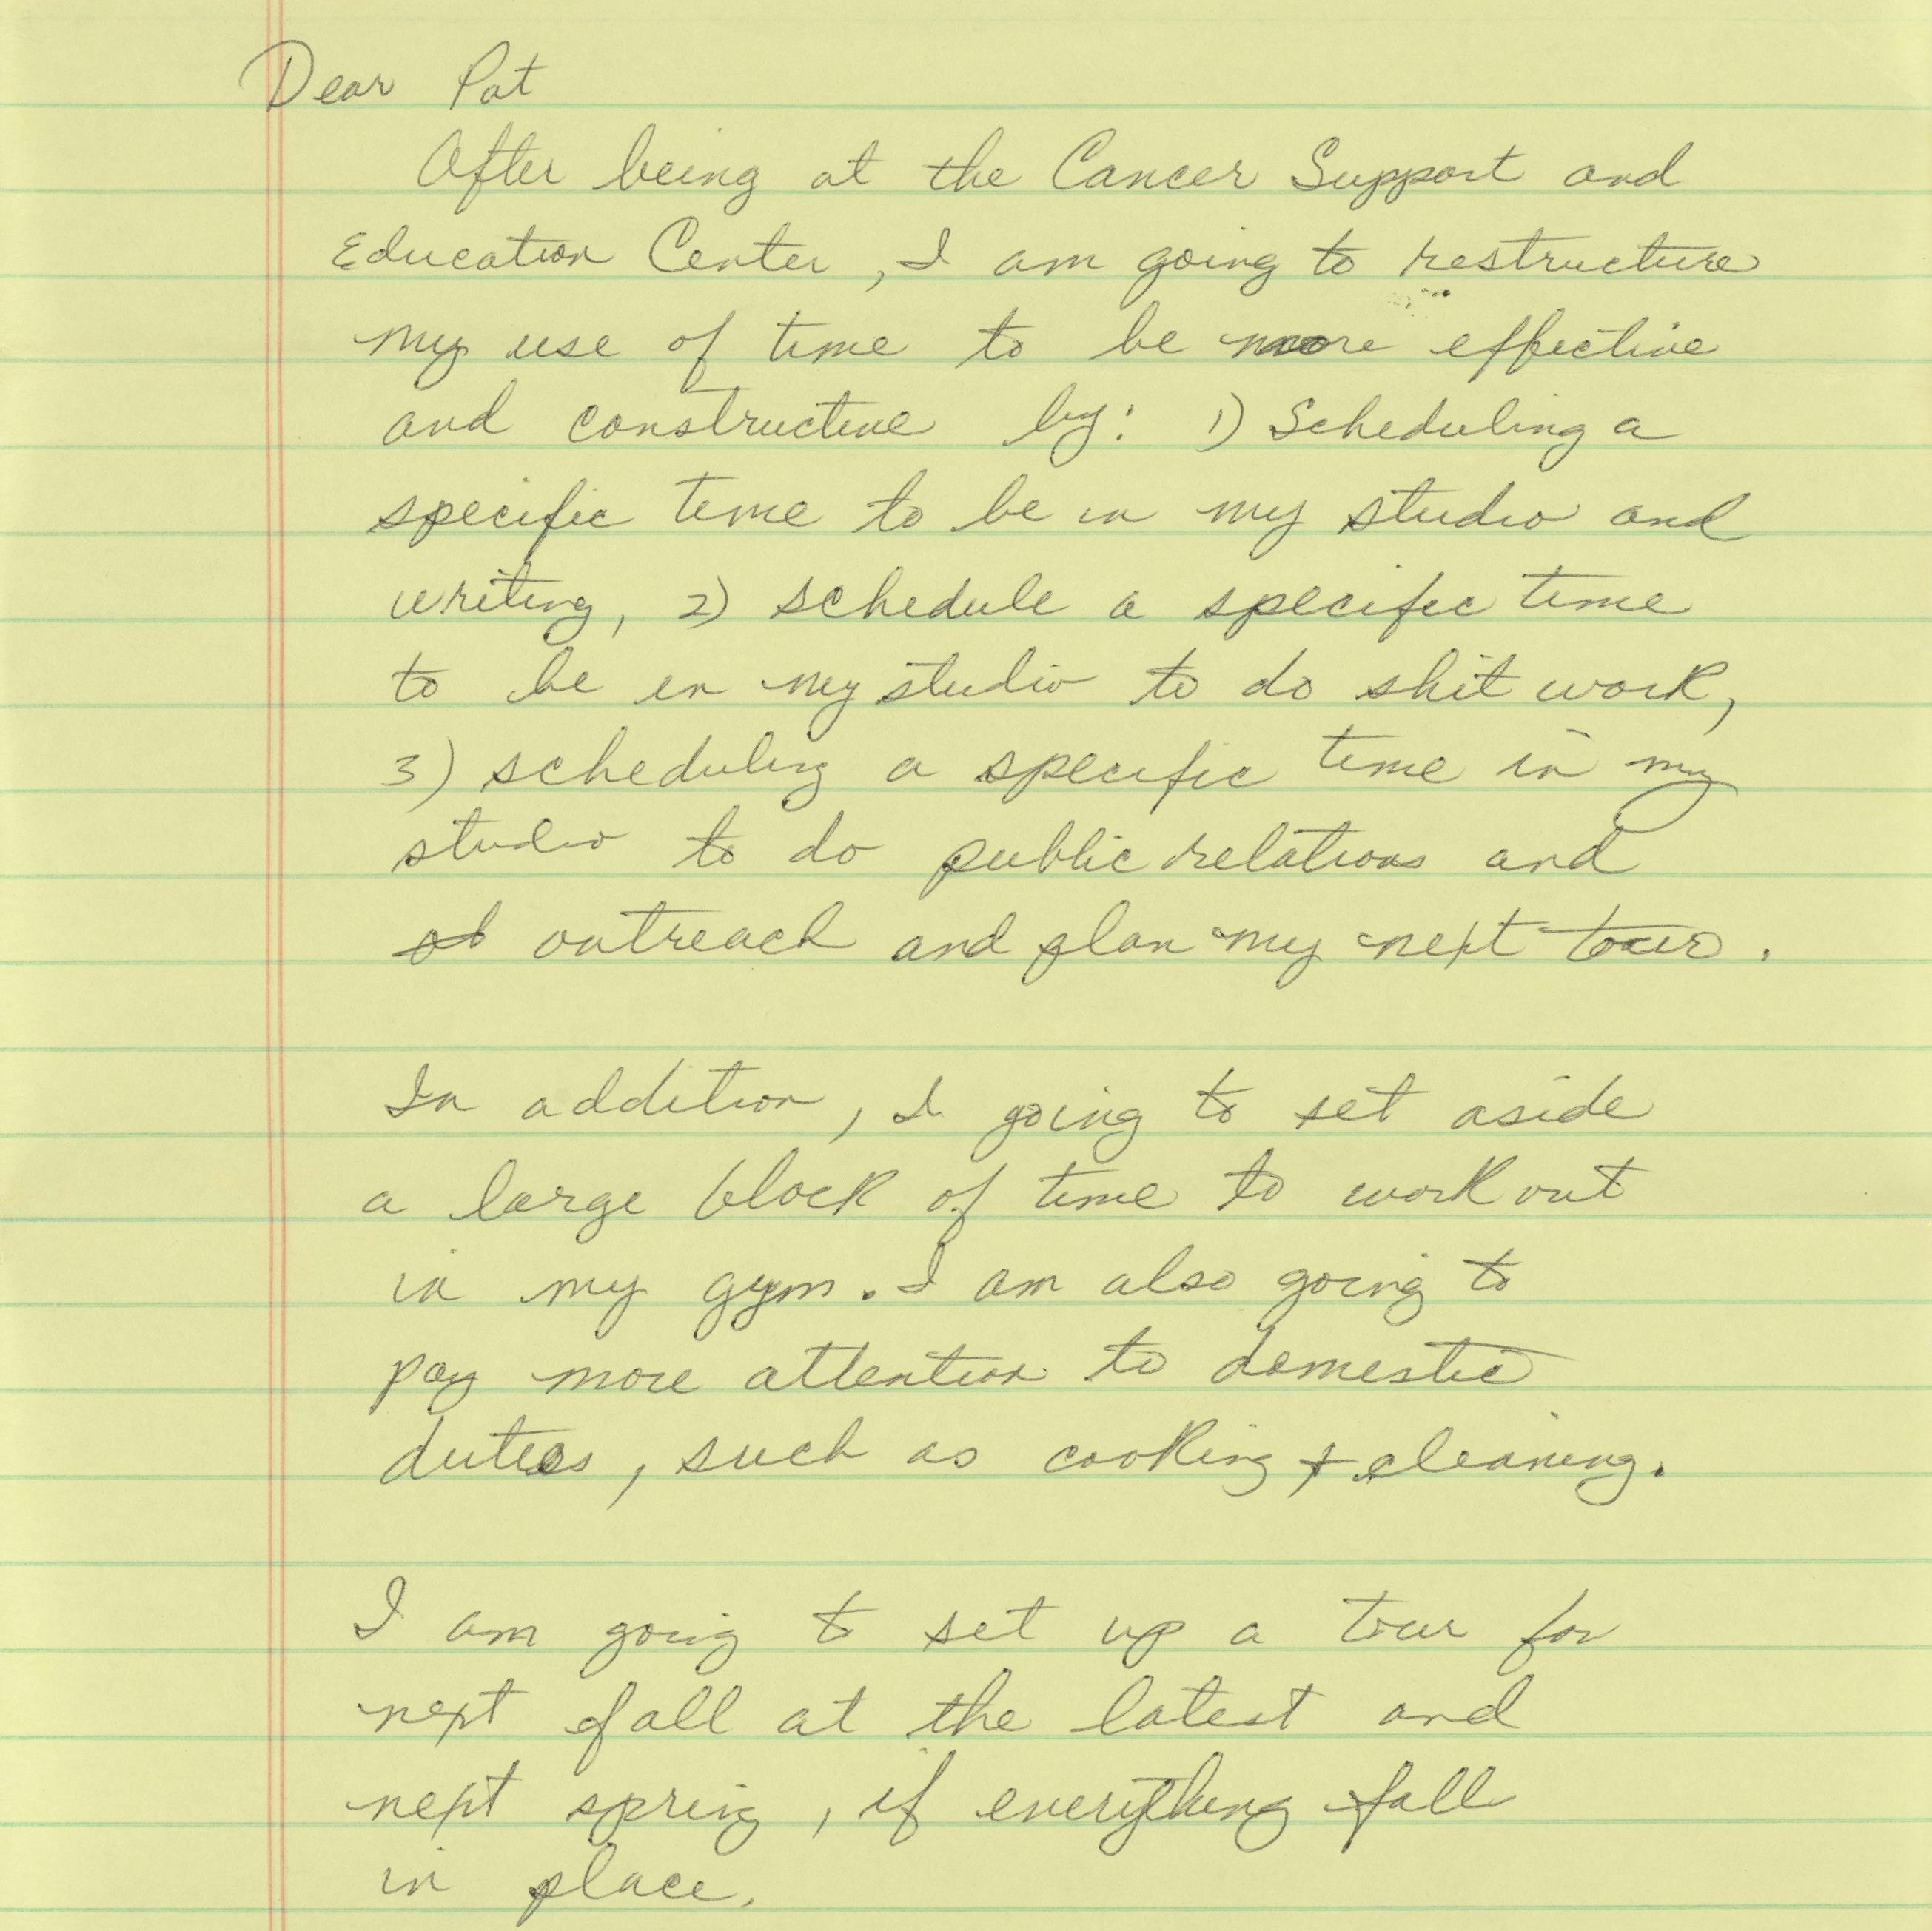 Dear Pat
After being at the Cancer Support and
Education Center, I am going to restructure
my use of time to be more effective
and constructive by: 1) Scheduling a
specific time to be in my studio and
writing, 2) schedule a specific time
to be in my studio to do shit work,
3) scheduling a specific time in my
studio to do public relations and
outreach and plan my next tour.
In addition, I going to set aside
a large block of time to work out
in my gym. I am also going to
pay more attention to domestic
duties, such as cooking + cleaning.
I am going to set up a tour for
next fall at the latest and
next spring, if everything fall
in place.